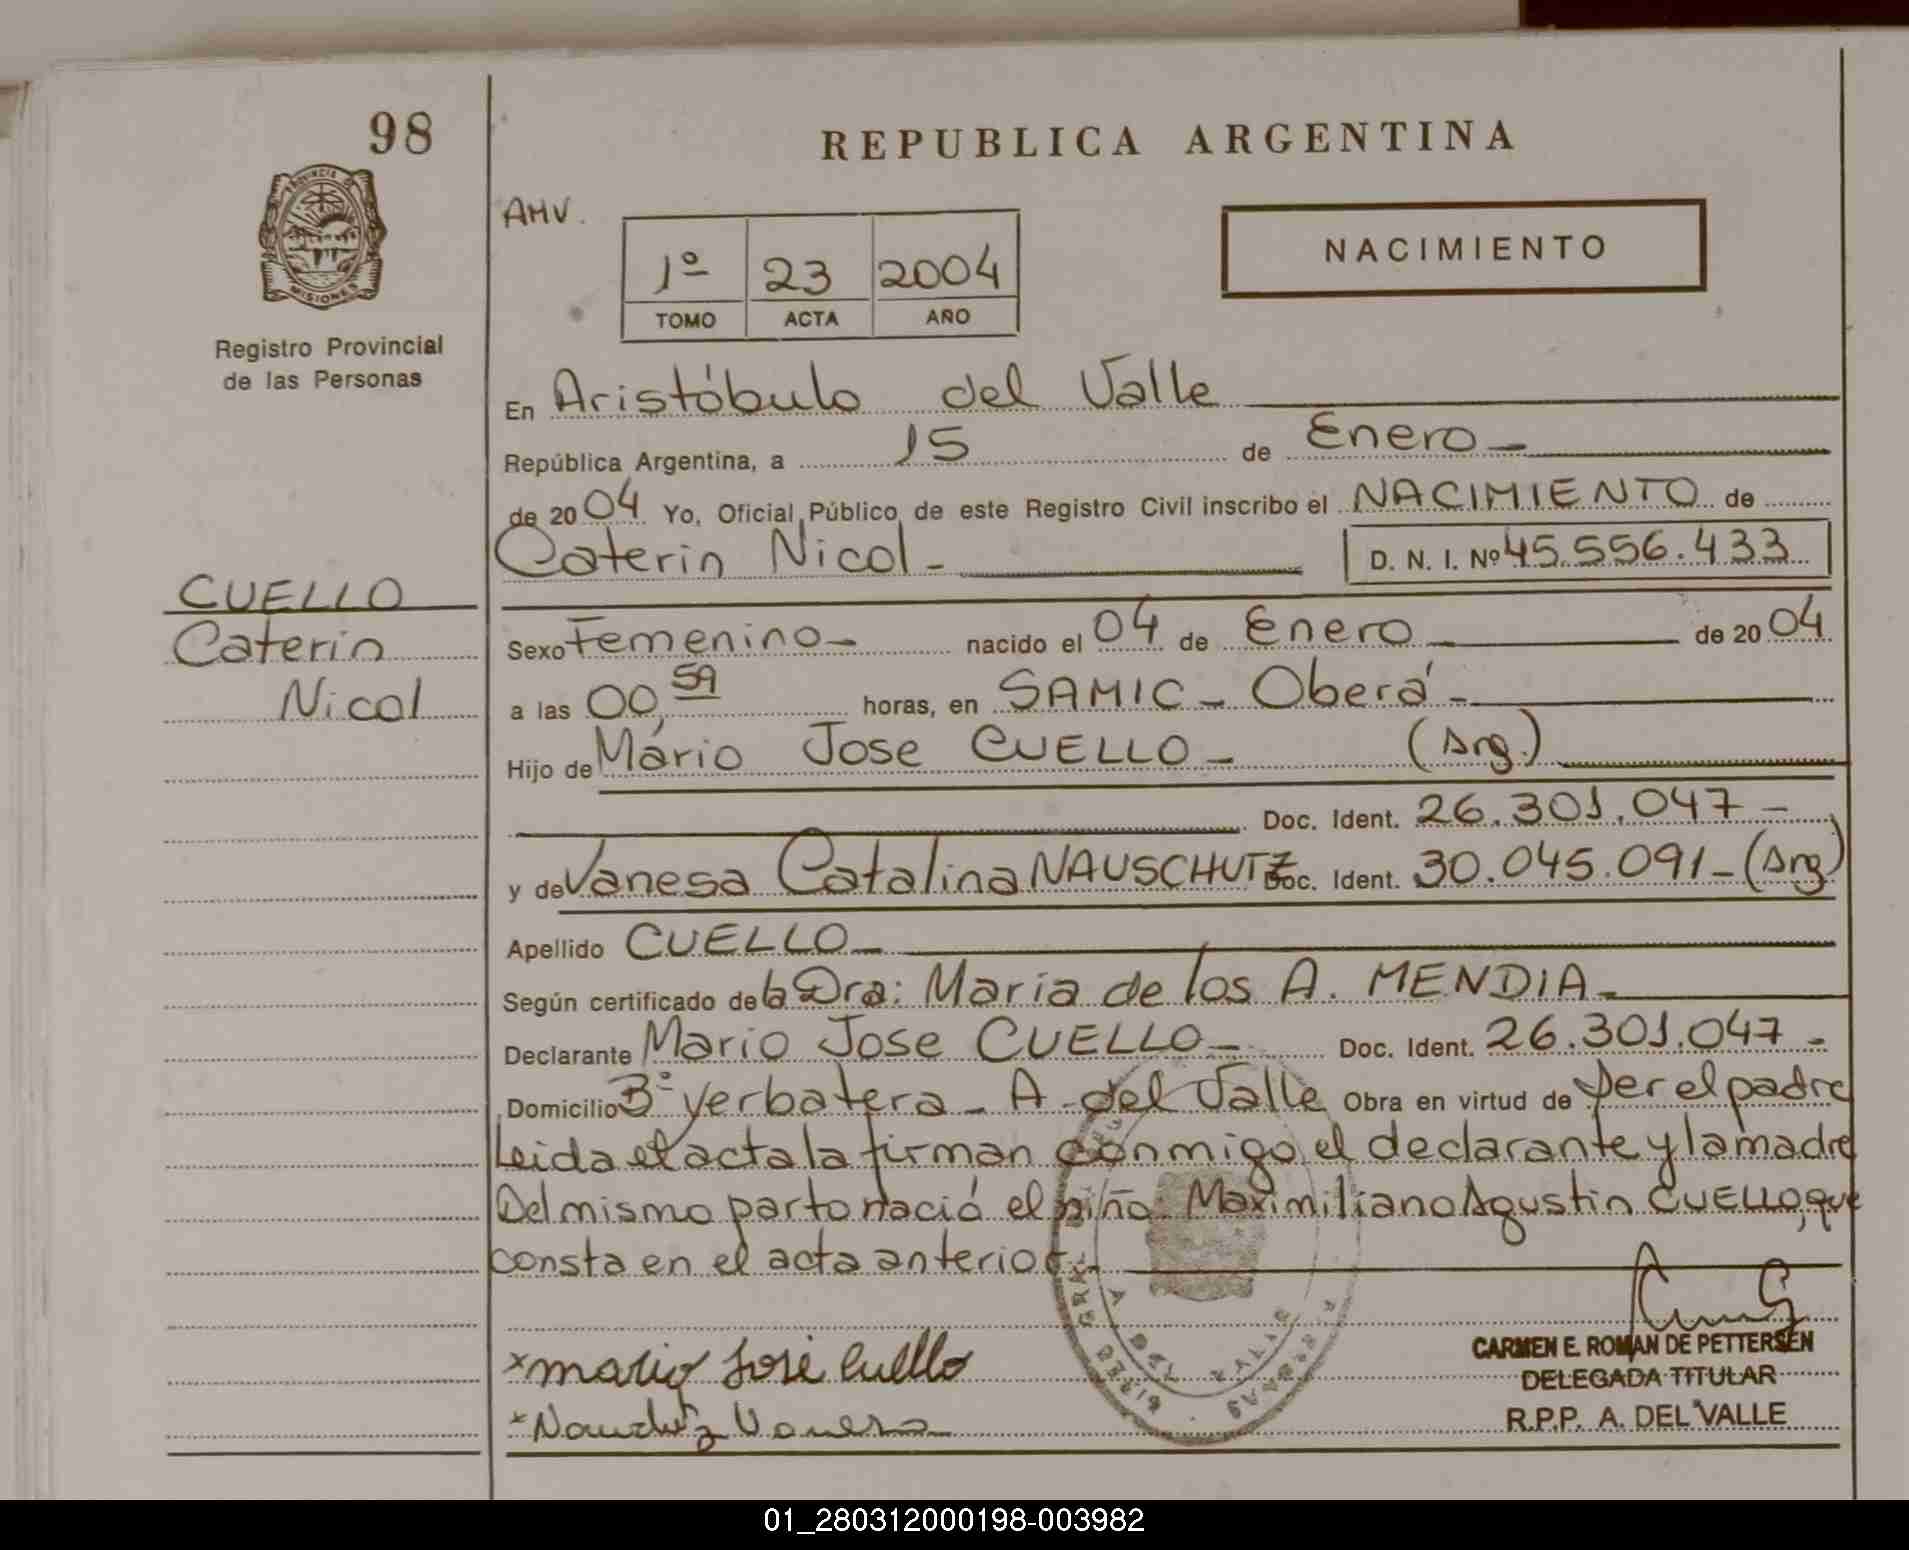 98
REPUBLICA ARGENTINA
PROVINCIA DE
MISIONES
Registro Provincial
de las Personas
AHV.
1º 23 2004
TOMO ACTA AÑO
NACIMIENTO
En Aristóbulo del Valle
República Argentina, a 15 de Enero -
de 2004 Yo, Oficial Público de este Registro Civil inscribo el NACIMIENTO de
Caterin Nicol - D. N. I. Nº 45.556.433
CUELLO
Caterin
Nicol
Sexo Femenino - nacido el 04 de Enero de 2004
a las 00,59 horas, en SAMIC - Oberá -
Hijo de Mario Jose CUELLO - (Arg.)
Doc. Ident. 26.301.047 -
y de Vanesa Catalina NAUSCHUTZ Doc. Ident. 30.045.091 - (Arg)
Apellido CUELLO -
Según certificado de la Dra: Maria de los A. MENDIA -
Declarante Mario Jose CUELLO - Doc. Ident. 26.301.047 -
Domicilio Bº Yerbatera - A. del Valle Obra en virtud de ser el padre
Leida el acta la firman conmigo el declarante y la madre
Del mismo parto nació el niño: Maximiliano Agustin CUELLO, que
consta en el acta anterior. -
* Mario José Cuello
* Vanesa
CARMEN E. ROMAN DE PETTERSEN
DELEGADA TITULAR
R.P.P. A. DEL VALLE
A. DEL VALLE
01_280312000198-003982